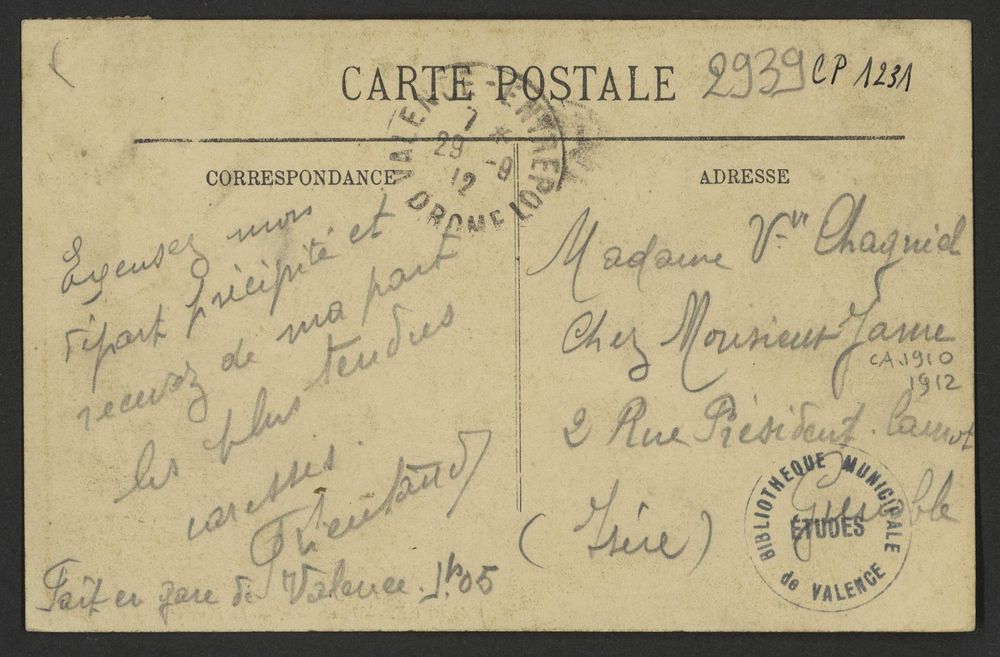 CARTE POSTALE
2939 CP 1231
VALENCE-ENTREPOT
7 *
29 -9
12
DROME
CORRESPONDANCE
ADRESSE
Excusez mon
départ précipité et
recevez de ma part
les plus tendres
caresses.
Fait en gare de Valence. 1h05
Madame Vve Chagniel
Chez Monsieur Jame
CA.1910
1912
2 Rue Président Carnot
Grenoble
(Isère)
BIBLIOTHEQUE MUNICIPALE
ÉTUDES
de VALENCE